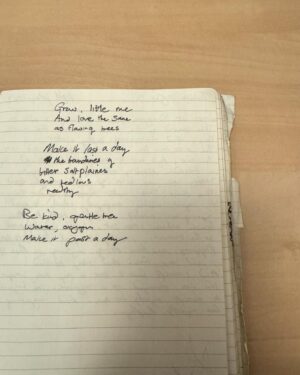 Grow, little me
And love the same
as flowing trees
Make it last a day
the boundaries of
bitter salt plaines
and
Be kind, gentle tree
Water, oxygen
Make it past a day